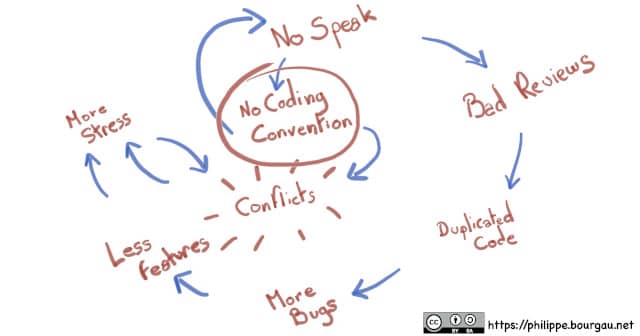 No Speak
No Coding
Convention
Bad Reviews
More
Stress
Conflicts
Duplicated
Code
Less
Features
More
Bugs
cc
BY SA
https://philippe.bourgau.net